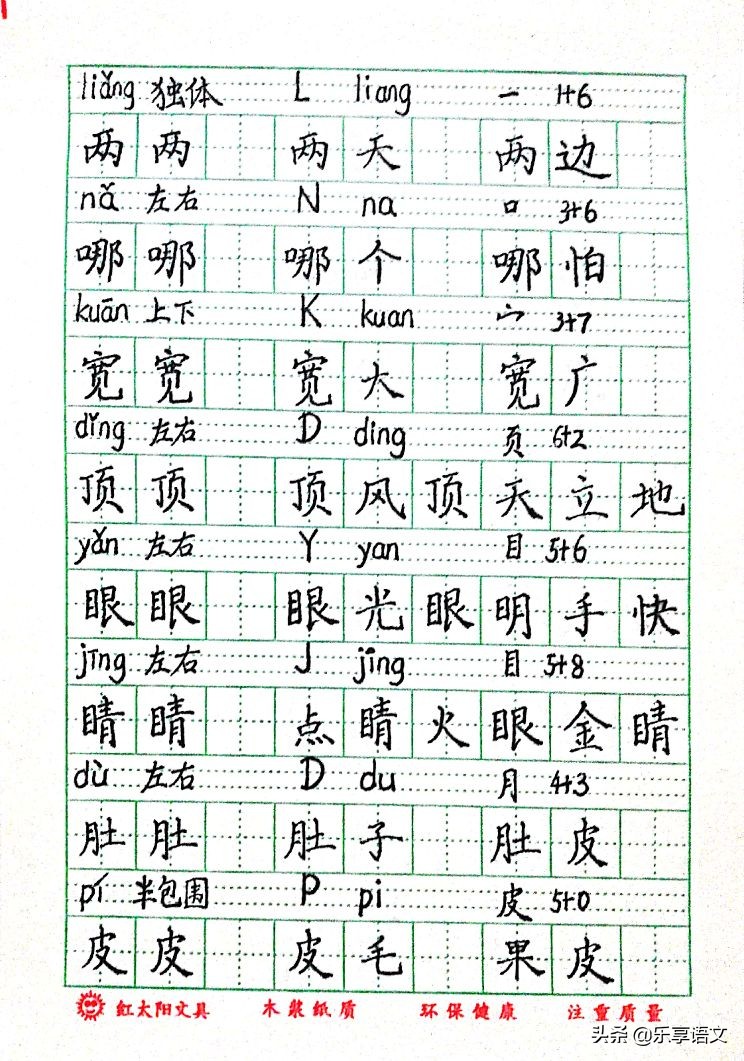 liǎng 独体 L liang 一 1+6
两 两 两 天 两 边
nǎ 左右 N na 口 3+6
哪 哪 哪 个 哪 怕
kuān 上下 K kuan 宀 3+7
宽 宽 宽 大 宽 广
dǐng 左右 D ding 页 6+2
顶 顶 顶 风 顶 天 立 地
yǎn 左右 Y yan 目 5+6
眼 眼 眼 光 眼 明 手 快
jīng 左右 J jing 目 5+8
睛 睛 点 睛 火 眼 金 睛
dù 左右 D du 月 4+3
肚 肚 肚 子 肚 皮
pí 半包围 P pi 皮 5+0
皮 皮 皮 毛 果 皮
红太阳文具 木浆纸质 环保健康 注重质量
头条 @乐享语文